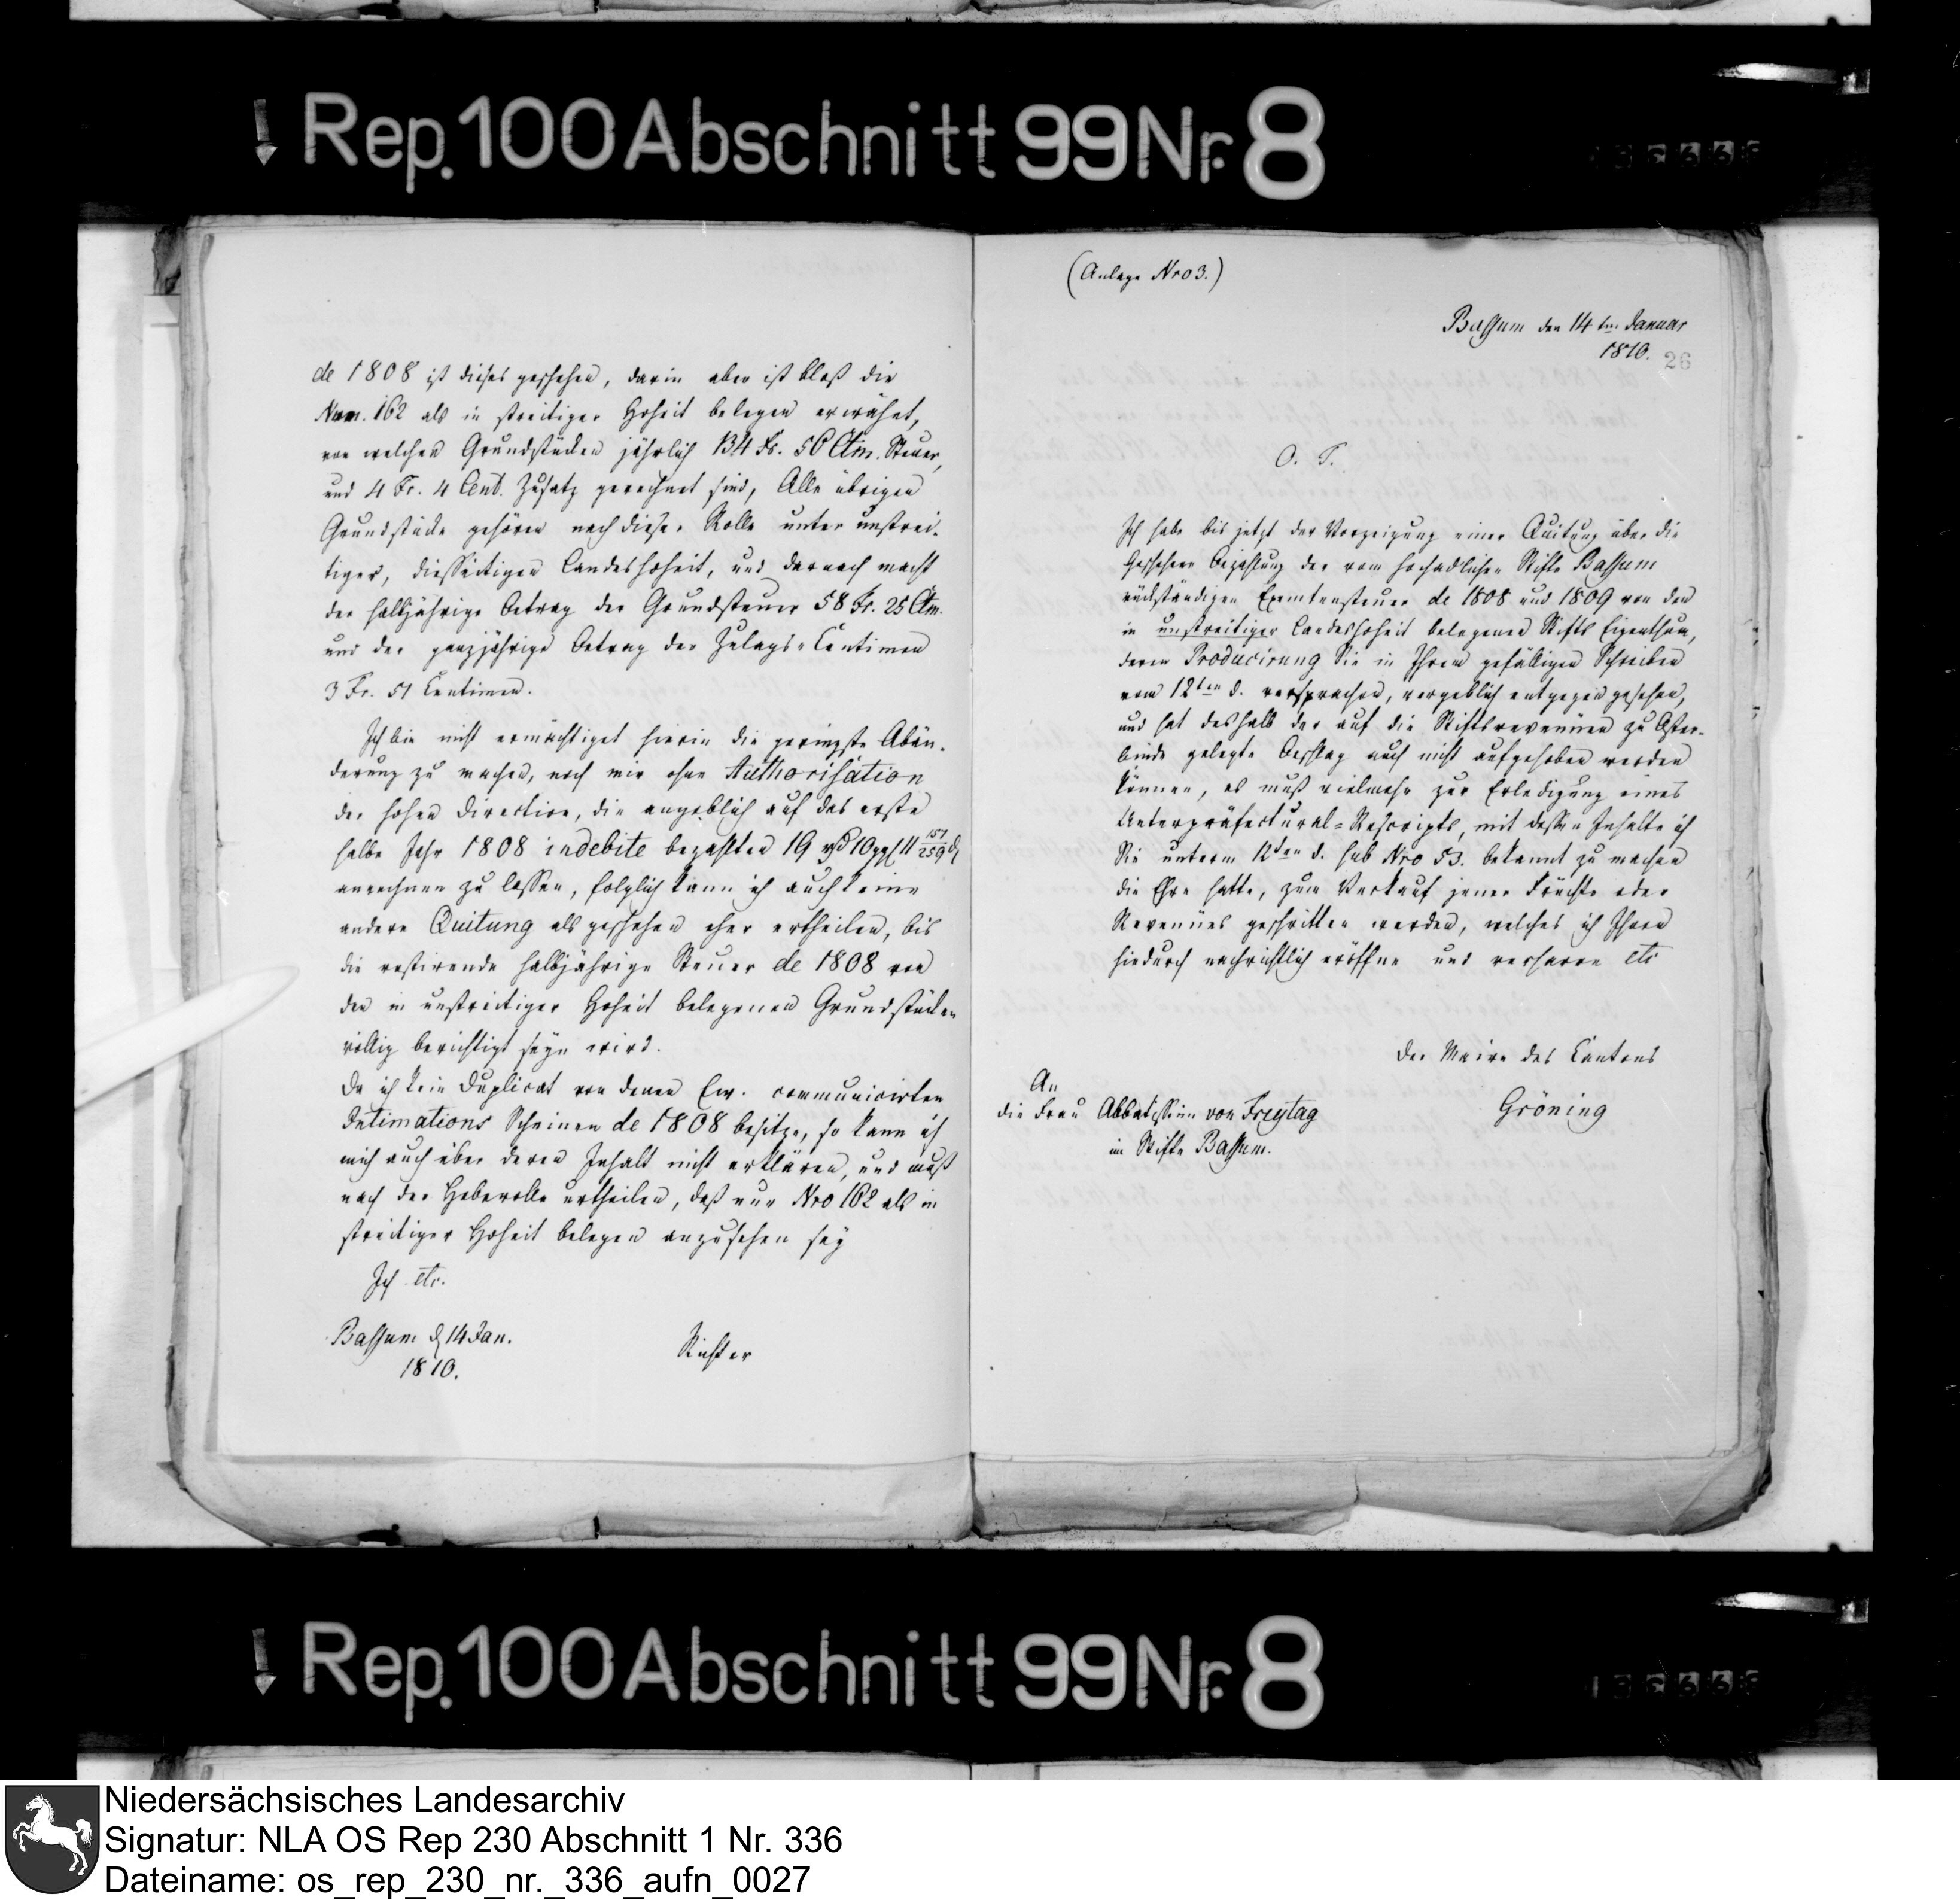 Rep. 100 Abschnitt 99 Nr. 8
de 1808 ist dieses geschehen, darin aber ist bloß die
Num. 162 als in streitiger Hoheit belegen erwähnt,
von welchen Grundstücken jährlich 134 Fr. 50 Ctm. Steuer,
und 4 Fr. 4 Cent. Zusatz gerechnet sind, Alle übrigen
Grundstücke gehören nach dieser Rolle unter unstrei-
tiger, diesseitigen Landeshoheit, und darnach macht
der halbjährige Betrag der Grundsteuer 58 Fr. 25 Ctm.
und der ganzjährige Betrag der Zulags-Centimen
3 Fr. 51 Centimen.
Ich bin nicht ermächtiget hierin die geringste Abän-
derung zu machen, noch mir ohne Authorisation
der hohen Direction, die angeblich auf das erste
halbe Jahr 1808 indebite bezahlten 19 rβ 10 ggl 11 157/259 d
anrechnen zu lassen, folglich kann ich auch keine
andere Quitung als geschehen eher ertheilen, bis
die restirende halbjährige Steuer de 1808 von
den in unstreitiger Hoheit belegenen Grundstücken
völlig berichtigt seyn wird.
Da ich kein Duplicat von denen Ew. communicirten
Intimations Scheinen de 1808 besitze, so kann ich
mich auch über deren Inhalt nicht erklären, und muß
nach der Heberolle urtheilen, daß nur Nro 162 als in
streitiger Hoheit belegen anzusehen sey
Ich etc.
Bassum d 14 Jan.
1810.
Richter
(Anlage Nro 3.)
Bassum den 14ten Januar
1810.
26
O. T.
Ich habe bis jetzt der Vorzeigung einer Quitung über die
geschehene Bezahlung der vom hochadlichen Stifte Bassum
rückständigen Exemtensteuer de 1808 und 1809 von den
in unstreitiger Landeshoheit belegenen Stifts Eigenthum,
deren Producirung Sie in Ihrem gefälligen Schreiben
vom 12ten d. versprachen, vergeblich entgegen gesehen,
und hat deshalb der auf die Stiftsrevenüen zu Oster-
binde gelegte Beschlag auch nicht aufgehoben werden
können, es muß vielmehr zur Erledigung eines
Unterpräfectural-Rescripts, mit dessen Inhalte ich
Sie unterm 12ten d. sub Nro 53. bekannt zu machen
die Ehre hatte, zum Verkauf jener Früchte oder
Revenües geschritten werden, welches ich Ihnen
hiedurch nachrichtlich eröffne und verharre etc
Der Maire des Cantons
Gröning
An
die Frau Abbatissinn von Freytag
im Stifte Bassum.
Rep. 100 Abschnitt 99 Nr. 8
Niedersächsisches Landesarchiv
Signatur: NLA OS Rep 230 Abschnitt 1 Nr. 336
Dateiname: os_rep_230_nr._336_aufn_0027